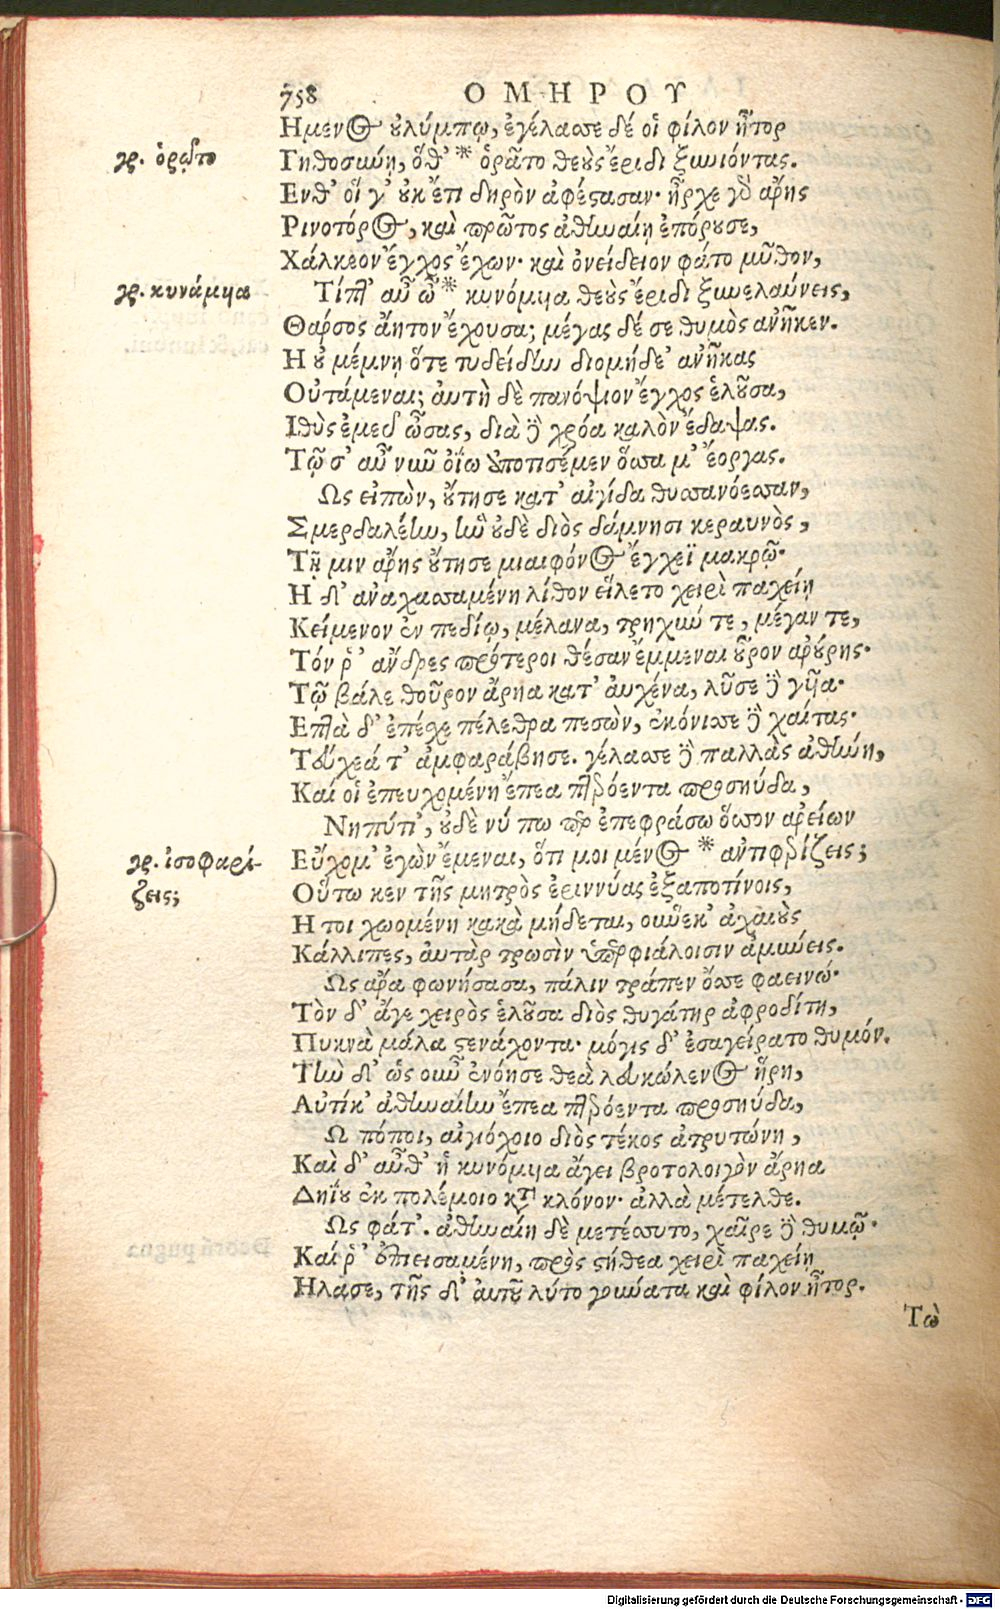 758 ΟΜΗΡΟΥ
Ημενος οὐλύμπῳ, ἐγέλασσε δέ οἱ φίλον ἦτορ
γρ. ὁρῷτο
Γηθοσύνῃ, ὅθ' * ὁρᾶτο θεοὺς ἔριδι ξυνιόντας.
Ενθ' οἵ γ' οὐκ ἔτι δηρὸν ἀφέστασαν· ἦρχε γὰρ ἄρης
Ρινοτόρος, καὶ πρῶτος ἀθηναίῃ ἐπόρουσε,
Χάλκεον ἔγχος ἔχων· καὶ ὀνείδειον φάτο μῦθον,
γρ. κυνάμυια
Τίπτ' αὖ ὦ * κυνόμυια θεοὺς ἔριδι ξυνελαύνεις,
Θάρσος ἄητον ἔχουσα; μέγας δέ σε θυμὸς ἀνῆκεν.
Η οὐ μέμνῃ ὅτε τυδείδην διομήδε' ἀνῆκας
Οὐτάμεναι; αὐτὴ δὲ πανόψιον ἔγχος ἑλοῦσα,
Ιθὺς ἐμεῦ ὦσας, διὰ δὲ χρόα καλὸν ἔδαψας.
Τῷ σ' αὖ νῦν οἴω ἀποτισέμεν ὅσσα μ' ἔοργας.
Ως εἰπὼν, οὔτησε κατ' αἰγίδα θυσσανόεσσαν,
Σμερδαλέην, ἣν οὐδὲ διὸς δάμνησι κεραυνὸς,
Τῇ μιν ἄρης οὔτησε μιαιφόνος ἔγχεϊ μακρῷ·
Η δ' ἀναχασσαμένη λίθον εἵλετο χειρὶ παχείῃ
Κείμενον ἐν πεδίῳ, μέλανα, τρηχύν τε, μέγαν τε,
Τόν ῥ' ἄνδρες πρότεροι θέσαν ἔμμεναι οὖρον ἀρούρης·
Τῷ βάλε θοῦρον ἄρηα κατ' αὐχένα, λῦσε δὲ γυῖα·
Επτὰ δ' ἐπέσχε πέλεθρα πεσὼν, ἐκόνισσε δὲ χαίτας·
Τεύχεά τ' ἀμφαράβησε. γέλασσε δὲ παλλὰς ἀθήνη,
Καί οἱ ἐπευχομένη ἔπεα πτερόεντα προσηύδα,
Νηπύτι', οὐδὲ νύ πω περ ἐπεφράσω ὅσσον ἀρείων
γρ. ἰσοφαρί-
ζεις;
Εὔχομ' ἐγὼν ἔμεναι, ὅτι μοι μένος * ἀντιφερίζεις;
Οὕτω κεν τῆς μητρὸς ἐριννύας ἐξαποτίνοις,
Η τοι χωομένη κακὰ μήδεται, οὕνεκ' ἀχαιοὺς
Κάλλιπες, αὐτὰρ τρωσὶν ὑπερφιάλοισιν ἀμύνεις.
Ως ἄρα φωνήσασα, πάλιν τράπεν ὄσσε φαεινώ·
Τὸν δ' ἄγε χειρὸς ἑλοῦσα διὸς θυγάτηρ ἀφροδίτη,
Πυκνὰ μάλα στενάχοντα· μόγις δ' ἐσαγείρατο θυμόν.
Τὴν δ' ὡς οὖν ἐνόησε θεὰ λευκώλενος ἥρη,
Αὐτίκ' ἀθηναίην ἔπεα πτερόεντα προσηύδα,
Ω πόποι, αἰγιόχοιο διὸς τέκος ἀτρυτώνη,
Καὶ δ' αὖθ' ἡ κυνόμυια ἄγει βροτολοιγὸν ἄρηα
Δηΐου ἐκ πολέμοιο κατὰ κλόνον· ἀλλὰ μέτελθε.
Ως φάτ'. ἀθηναίη δὲ μετέσσυτο, χαῖρε δὲ θυμῷ·
Καί ῥ' ἐπιεισαμένη, πρὸς στήθεα χειρὶ παχείῃ
Ηλασε, τῆς δ' αὐτοῦ λύτο γούνατα καὶ φίλον ἦτορ.
Τὼ
Digitalisierung gefördert durch die Deutsche Forschungsgemeinschaft - DFG